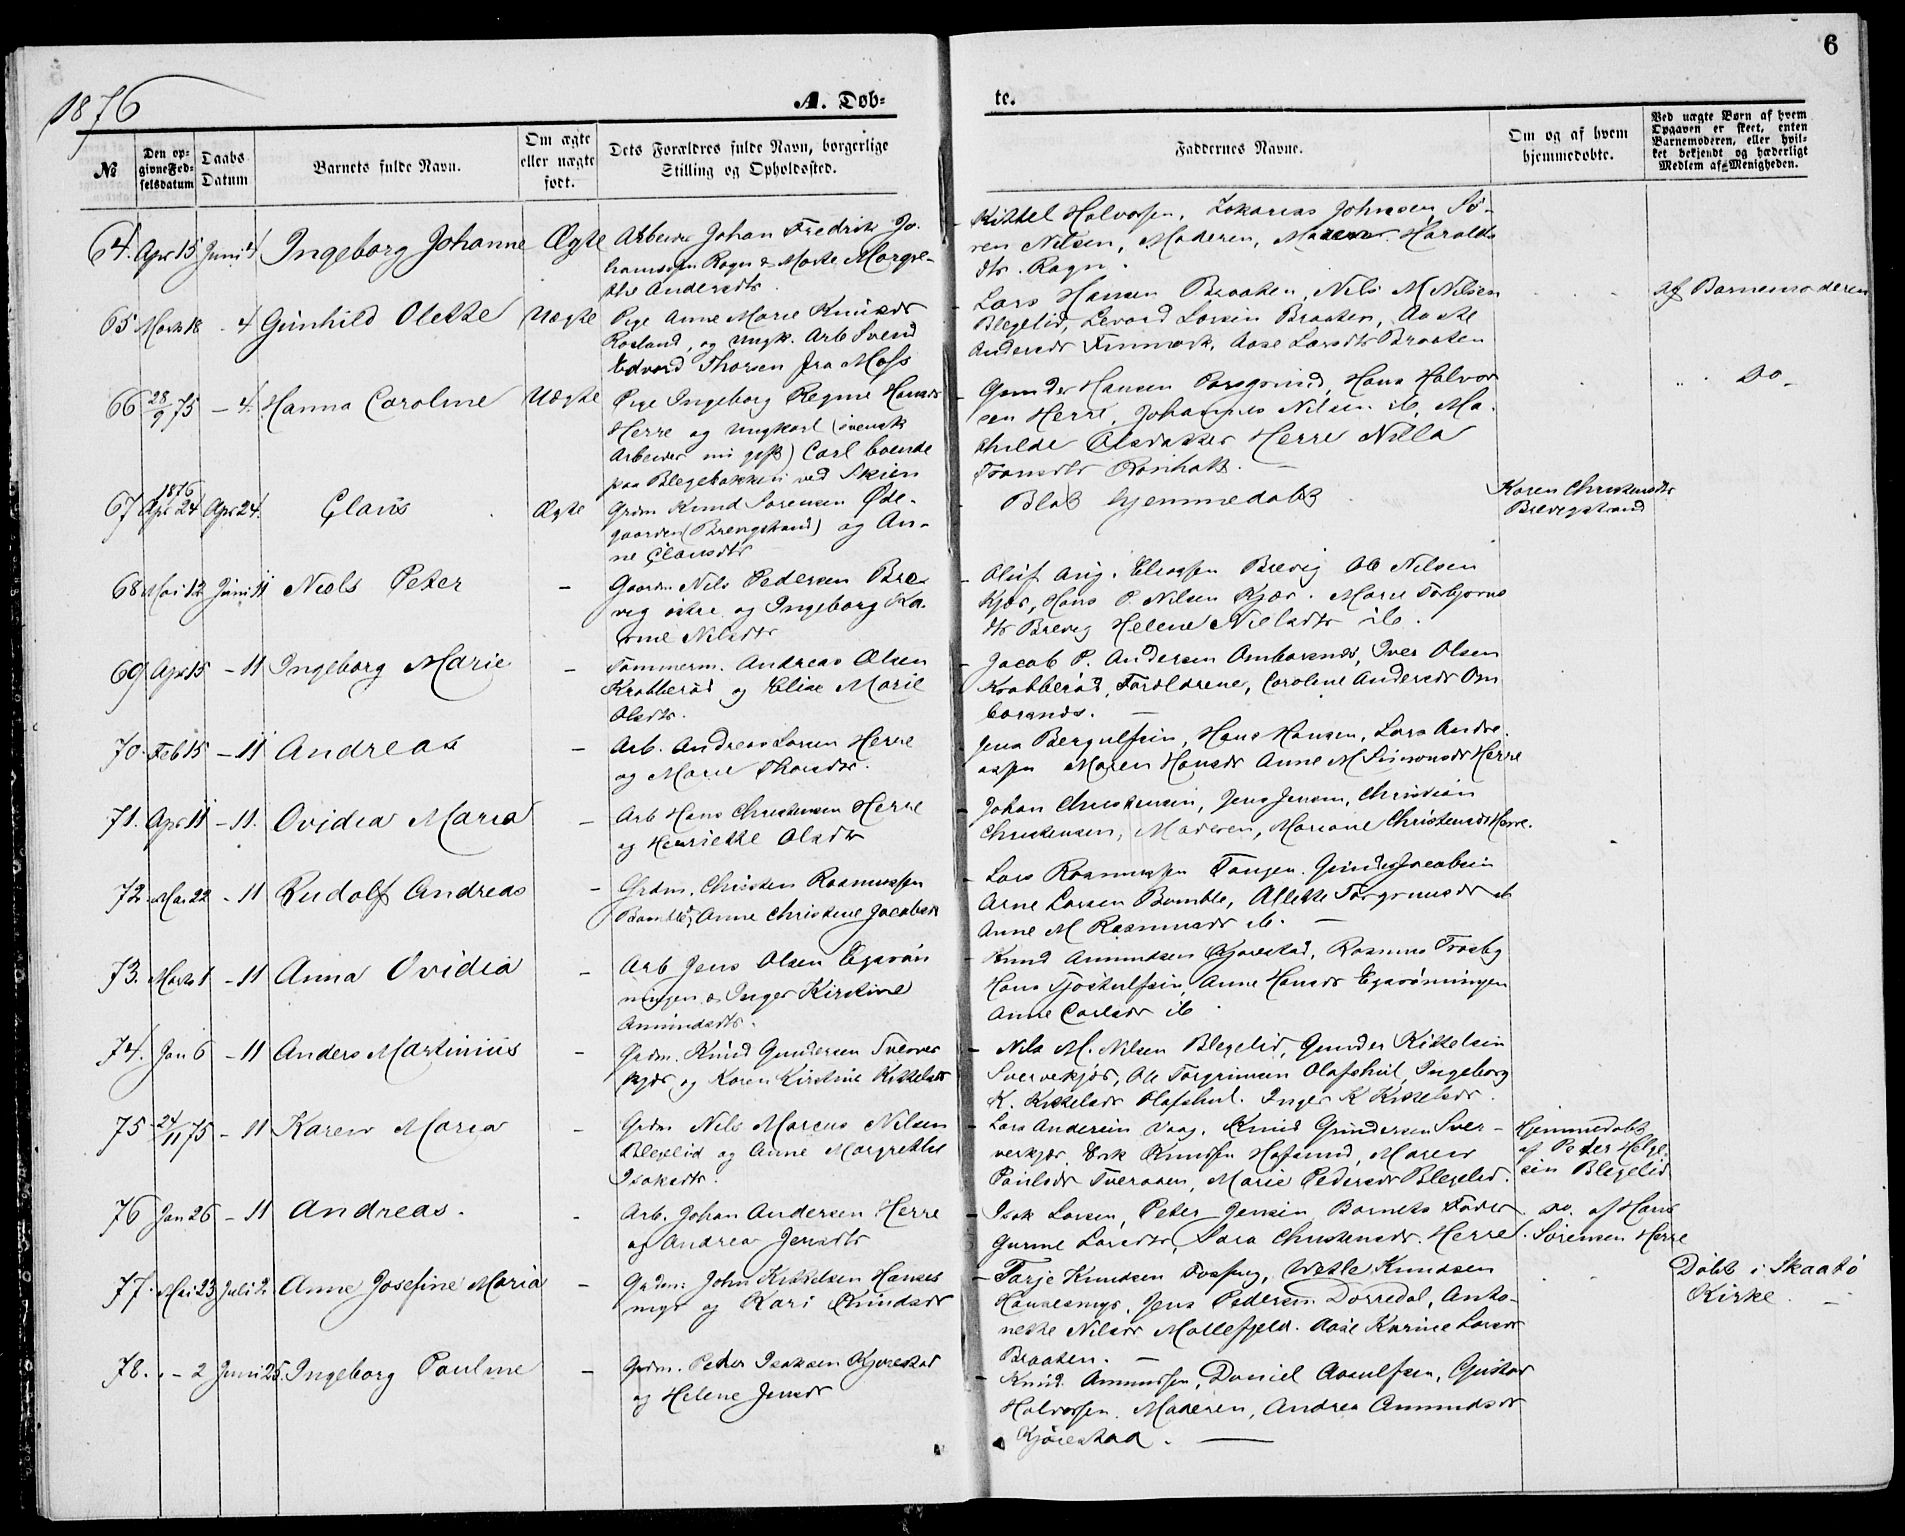 6
1876
A. Døb=
te.
№
Den op-
givne Fød-
selsdatum
Daabs
Datum
Barnets fulde Navn.
Om ægte
eller uægte
født.
Dets Forældres fulde Navn, borgerlige
Stilling og Opholdssted.
Faddernes Navne.
Om og af hvem
hjemmedøbte.
Ved uægte Børn af hvem
Opgaven er skeet, enten
Barnemoderen, eller hvil-
ket bekjendt og hæderligt
Medlem af Menigheden.
64. Apr 15 Juni 4 Ingeborg Johanne Ægte
Arbeider Johan Fredrik Jo-
hannsen Rogn & Marte Margre-
the Andersdtr.
Kittel Halvorsen, Zakarias Johnsen, Sø-
ren Nilsen, Moderen, Maren Harolds
dtr. Rogn.
65 Marts 18 - 4 Gunhild Olette Uægte
Pige Anne Marie Knudsdr
Rosland, og Ungk. Arb Svend
Edvard Thorsen fra Moss
Lars Hansen Braaten, Nils M Nilsen
Blegelid, Levord Larsen Braaten, Aaste
Andersdr Finmark, Aase Larsdtr Braaten
Af Barnemoderen
66 28/9 75 - 4. Hanna Caroline Uægte
Pige Ingeborg Regine Hansdr
Herre og Ungkarl (svensk
Arbeider nu gift) Carl boende
paa Blegebakken ved Skien
Gunder Hansen Porsgrund, Hans Halvor
sen Herre, Johannes Nilsen ib, Ma-
thilde Olsdatter Herre Nilla
Fransdtr Rønholt. —
Do
67 1876 Apr 24 Apr 24. Claus Ægte
Grdm Knud Sørensen Øde-
gaarden (Brevigstrand) og An-
ne Clausdtr
Blot hjemmedøbt
Karen Christensdtr
Brevigstrand
68 Mai 12 Juni 11 Niels Peter -
Gaardm Nils Pedersen Bre-
vig østre og Ingeborg Ka-
rine Nilsdtr
Oluf Aug. Eliassen Brevig Ole Nilsen
Kjær, Hans P. Nilsen Kjær. Marie Torbjørns
dtr Brevig Helene Nielsdtr ib.
69 Apr 15 - 11 Ingeborg Marie -
Tømmerm. Andreas Olsen
Krabberød og Elise Marie
Olsdtr.
Jacob P. Andersen Omborsnes, Iver Olsen
Krabberød, Forældrene, Caroline Andersdr Om
borsnes. —
70. Feb 15 - 11 Andreas -
Arb. Andreas Larsen Herre
og Marie Thorsdtr.
Jens Bergulfsen, Hans Hansen, Lars Andre-
assen Maren Hansdr Anne M Simonsdr Herre
71. Apr 11 - 11. Ovidia Maria -
Arb Hans Christensen Herre
og Henriette Olsdtr
Johan Christensen, Jens Jensen, Christian
Christensen, Moderen, Mariane Christensdr Herre.
72. Mai 22 - 11 Rudolf Andreas -
Grdm. Christen Rasmussen
Bamble, Anne Christine Jacobsdr
Lars Rasmussen Tangen. Gunder Jacobsen
Arne Larsen Bamble, Allette Torgrimsdr ib
Anne M Rasmusdr ib. —
73. Marts 1 - 11 Anna Ovidia -
Arb Jens Olsen Egsrøn
ningen & Inger Kirstine
Amundsdtr.
Knud Amundsen Kjørestad, Rasmus Trosby
Hans Tjostulfsen, Anne Hansdr Egsrønningen
Anne Carlsdr ib
74. Jan 6 - 11 Anders Martinius -
Grdm. Knud Gundersen Sverver
kjær og Karen Kirstine Kittelsdr
Nils M. Nilsen Blegelid, Gunder Kittelsen
Svervekjær, Ole Torgrimsen Olafshul, Ingeborg
K. Kittelsdr Olafshul. Inger K Kittelsdr.
75 24/11 75 - 11 Karen Maria -
Grdm Nils Marcus Nilsen
Blegelid og Anne Margrethe
Isaksdtr.
Lars Andersen Vaag. Knud Gundersen Sver-
verkjær. Erik Knudsen Hafsund, Maren
Paulsdr Tveraaen, Marie Pedersdr Blegelid.
Hjemmedøbt
af Peder Helge-
sen Blegelid
76 Jan 26 - 11 Andreas. -
Arb. Johan Andersen Herre
og Andrea Jensdtr
Isak Larsen, Peter Jensen, Barnets Fader
Gurine Larsdtr, Sara Christensdr. Herre.
Do. af Maria
Sørensen Herre
77. Mai 23 Juli 2 Anne Josefine Maria -
Grdm: John Kittelsen Hanses
myr og Kari Knudsdr
Tarje Knudsen Fossing, Wetle Knudsen
Hansesmyr, Jens Pedersen Dørredal, Anto-
nette Nilsdr Mollefjeld. Aase Karine Larsdr
Braaten. —
Døbt i Skaatø
Kirke. —
78. - - 2 Juni 25. Ingeborg Pauline -
Grdm. Peder Isaksen Kjørestad
og Helene Jensdr
Knud Amundsen, Daniel Aasulfsen, Gustav
Halvorsen. Moderen, Andrea Amundsdr
Kjørestad. —